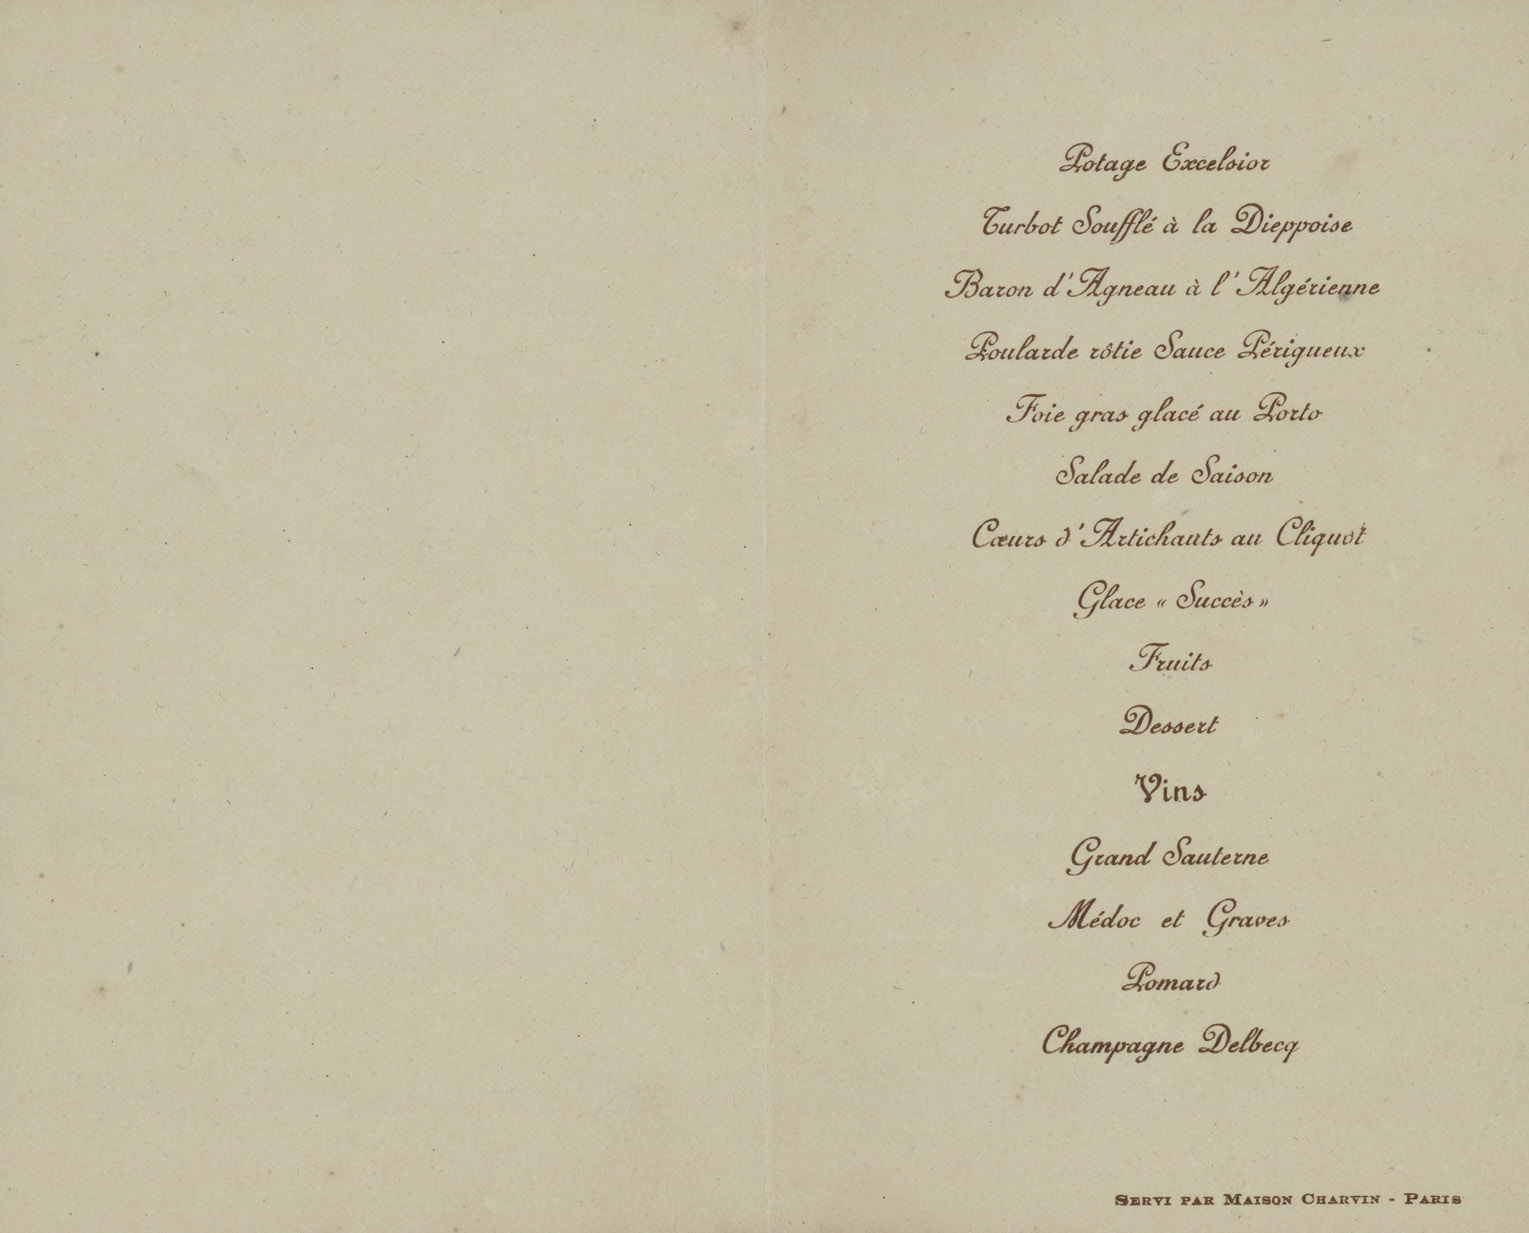 Potage Excelsior
Turbot Soufflé à la Dieppoise
Baron d'Agneau à l'Algérienne
Poularde rôtie Sauce Périgueux
Foie gras glacé au Porto
Salade de Saison
Cœurs d'Artichauts au Cliquot
Glace « Succès »
Fruits
Dessert
Vins
Grand Sauterne
Médoc et Graves
Pomard
Champagne Delbecq
Servi par Maison Charvin - Paris